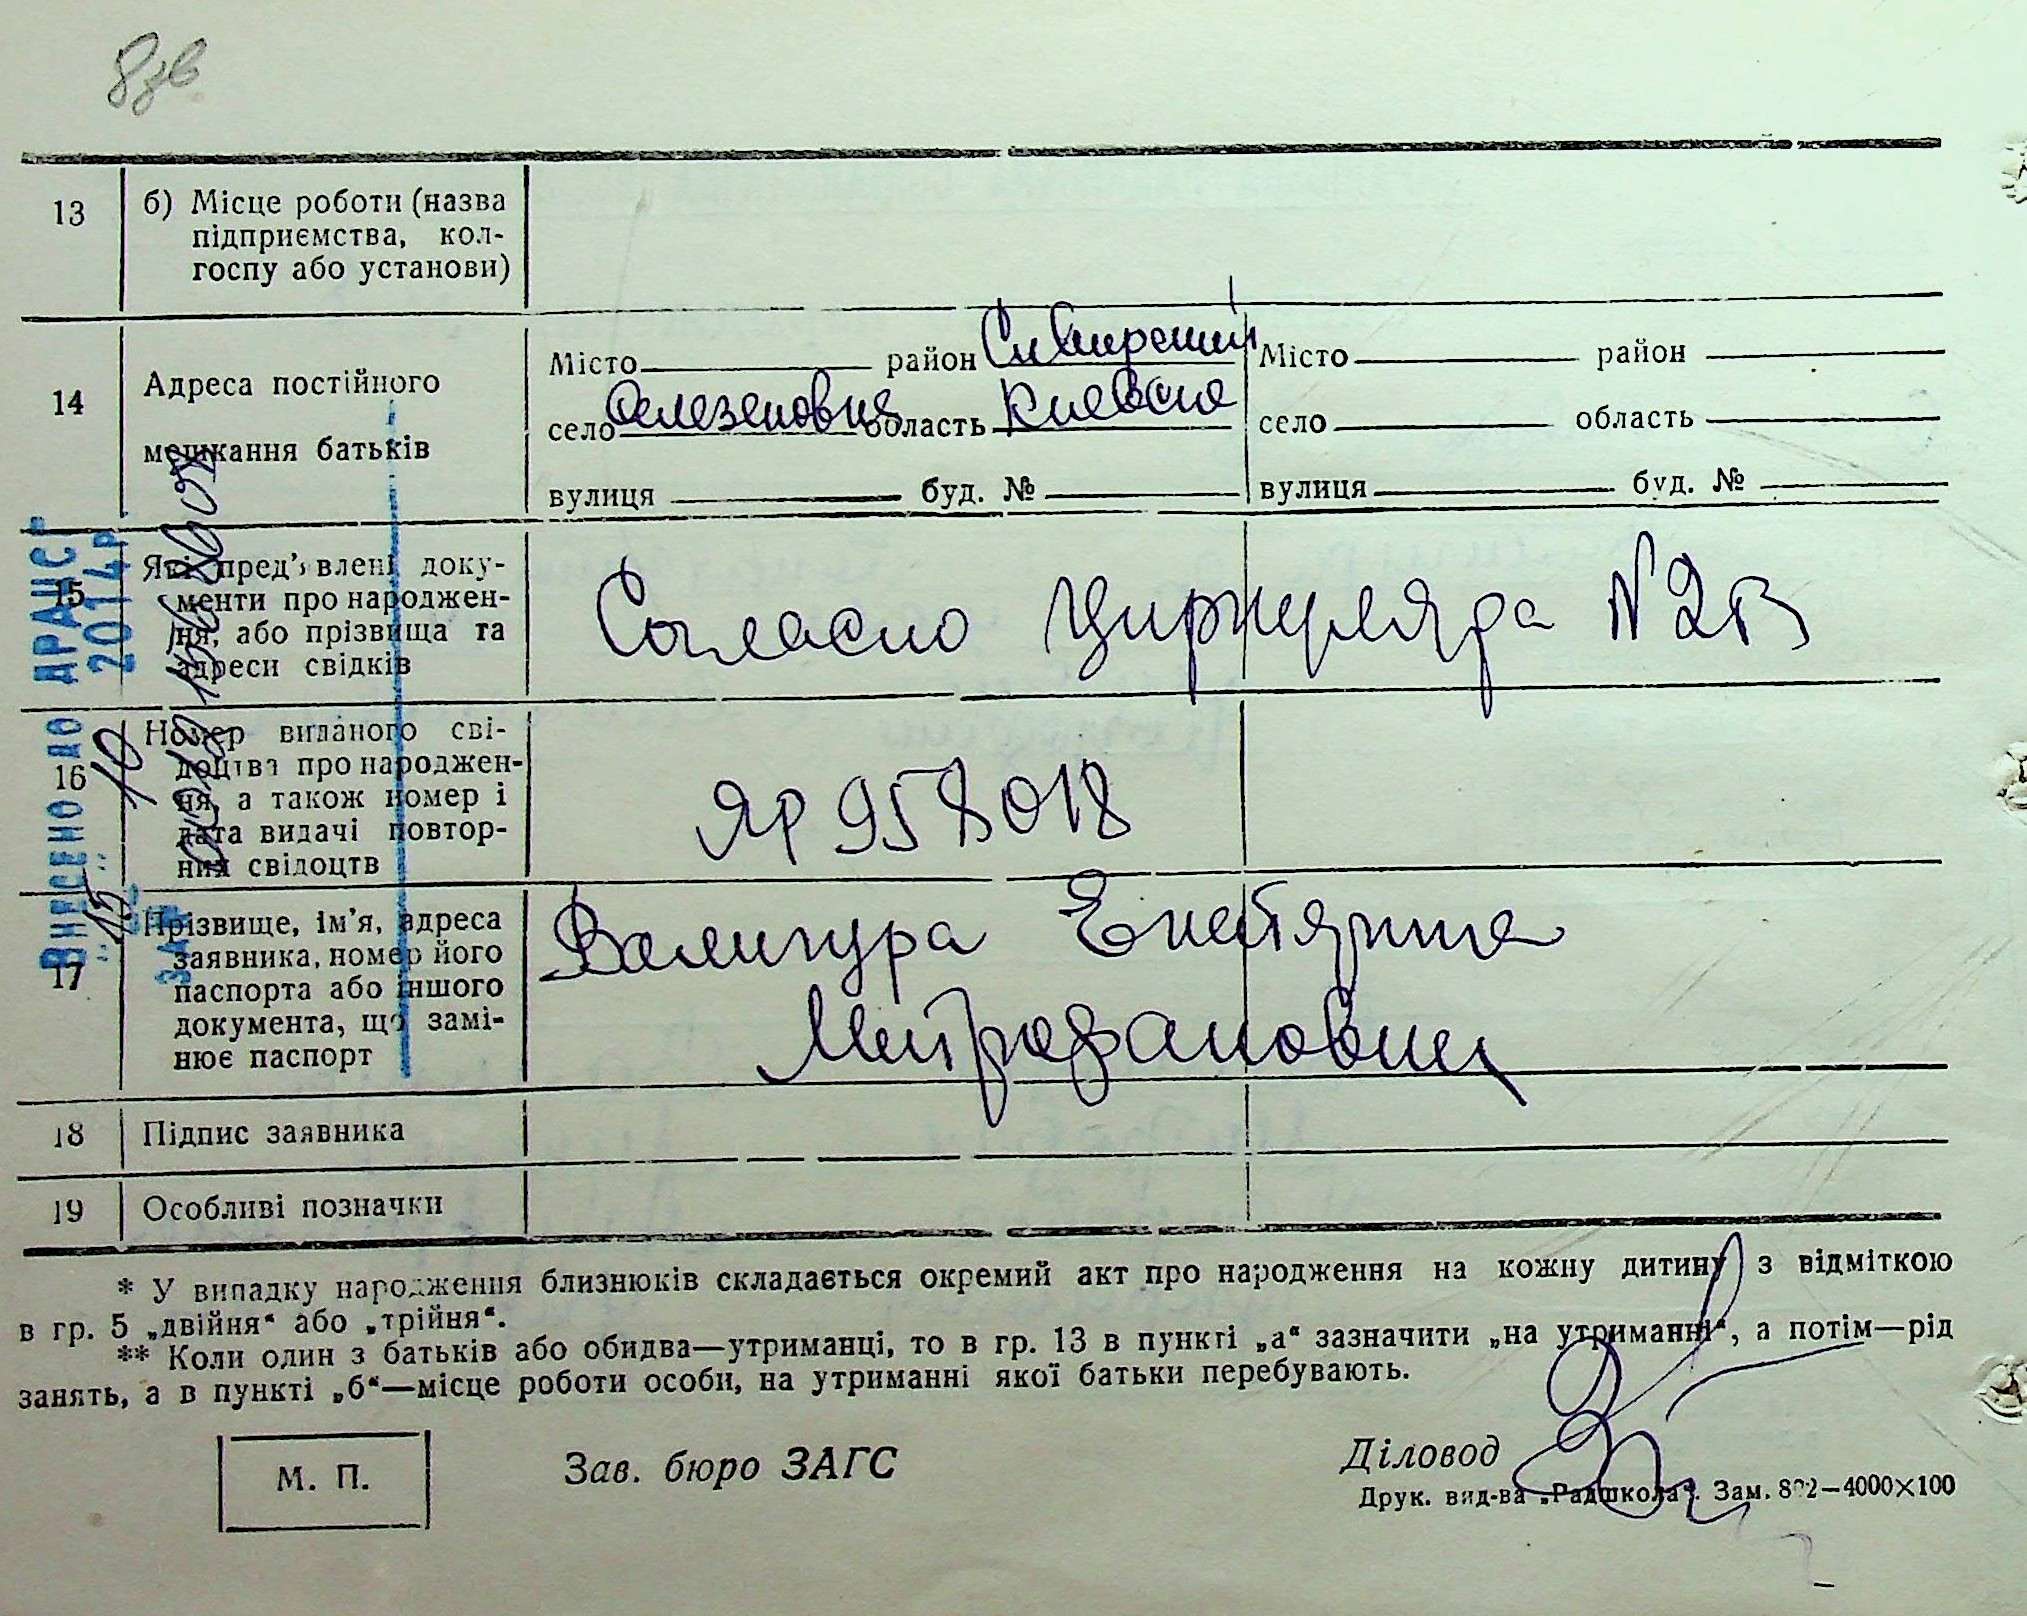 8зв
13 б) Місце роботи (назва
підприємства, кол-
госпу або установи)
14 Адреса постійного
мешкання батьків
Місто район Сквирский Місто район
село Селезеновка область Киевская село область
вулиця буд. № вулиця буд. №
15 Які пред'явлені доку-
менти про народжен-
ня, або прізвища та
адреси свідків
Согласно Циркуляра N 2В
16 Номер виданого сві-
доцтва про народжен-
ня, а також номер і
дата видачі повтор-
них свідоцтв
ЯР 958018
17 Прізвище, ім'я, адреса
заявника, номер його
паспорта або іншого
документа, що замі-
нює паспорт
Валигура Екатярина
Митрофановна
18 Підпис заявника
19 Особливі позначки
ВНЕСЕНО ДО ДРАЦСГ
"15" 10 2014 р.
* У випадку народження близнюків складається окремий акт про народження на кожну дитину з відміткою
в гр. 5 „двійня“ або „трійня“.
** Коли один з батьків або обидва—утриманці, то в гр. 13 в пункті „а“ зазначити „на утриманні“, а потім—рід
занять, а в пункті „б“—місце роботи особи, на утриманні якої батьки перебувають.
М. П.
Зав. бюро ЗАГС
Діловод
Друк. вид-ва „Радшкола“. Зам. 892—4000×100